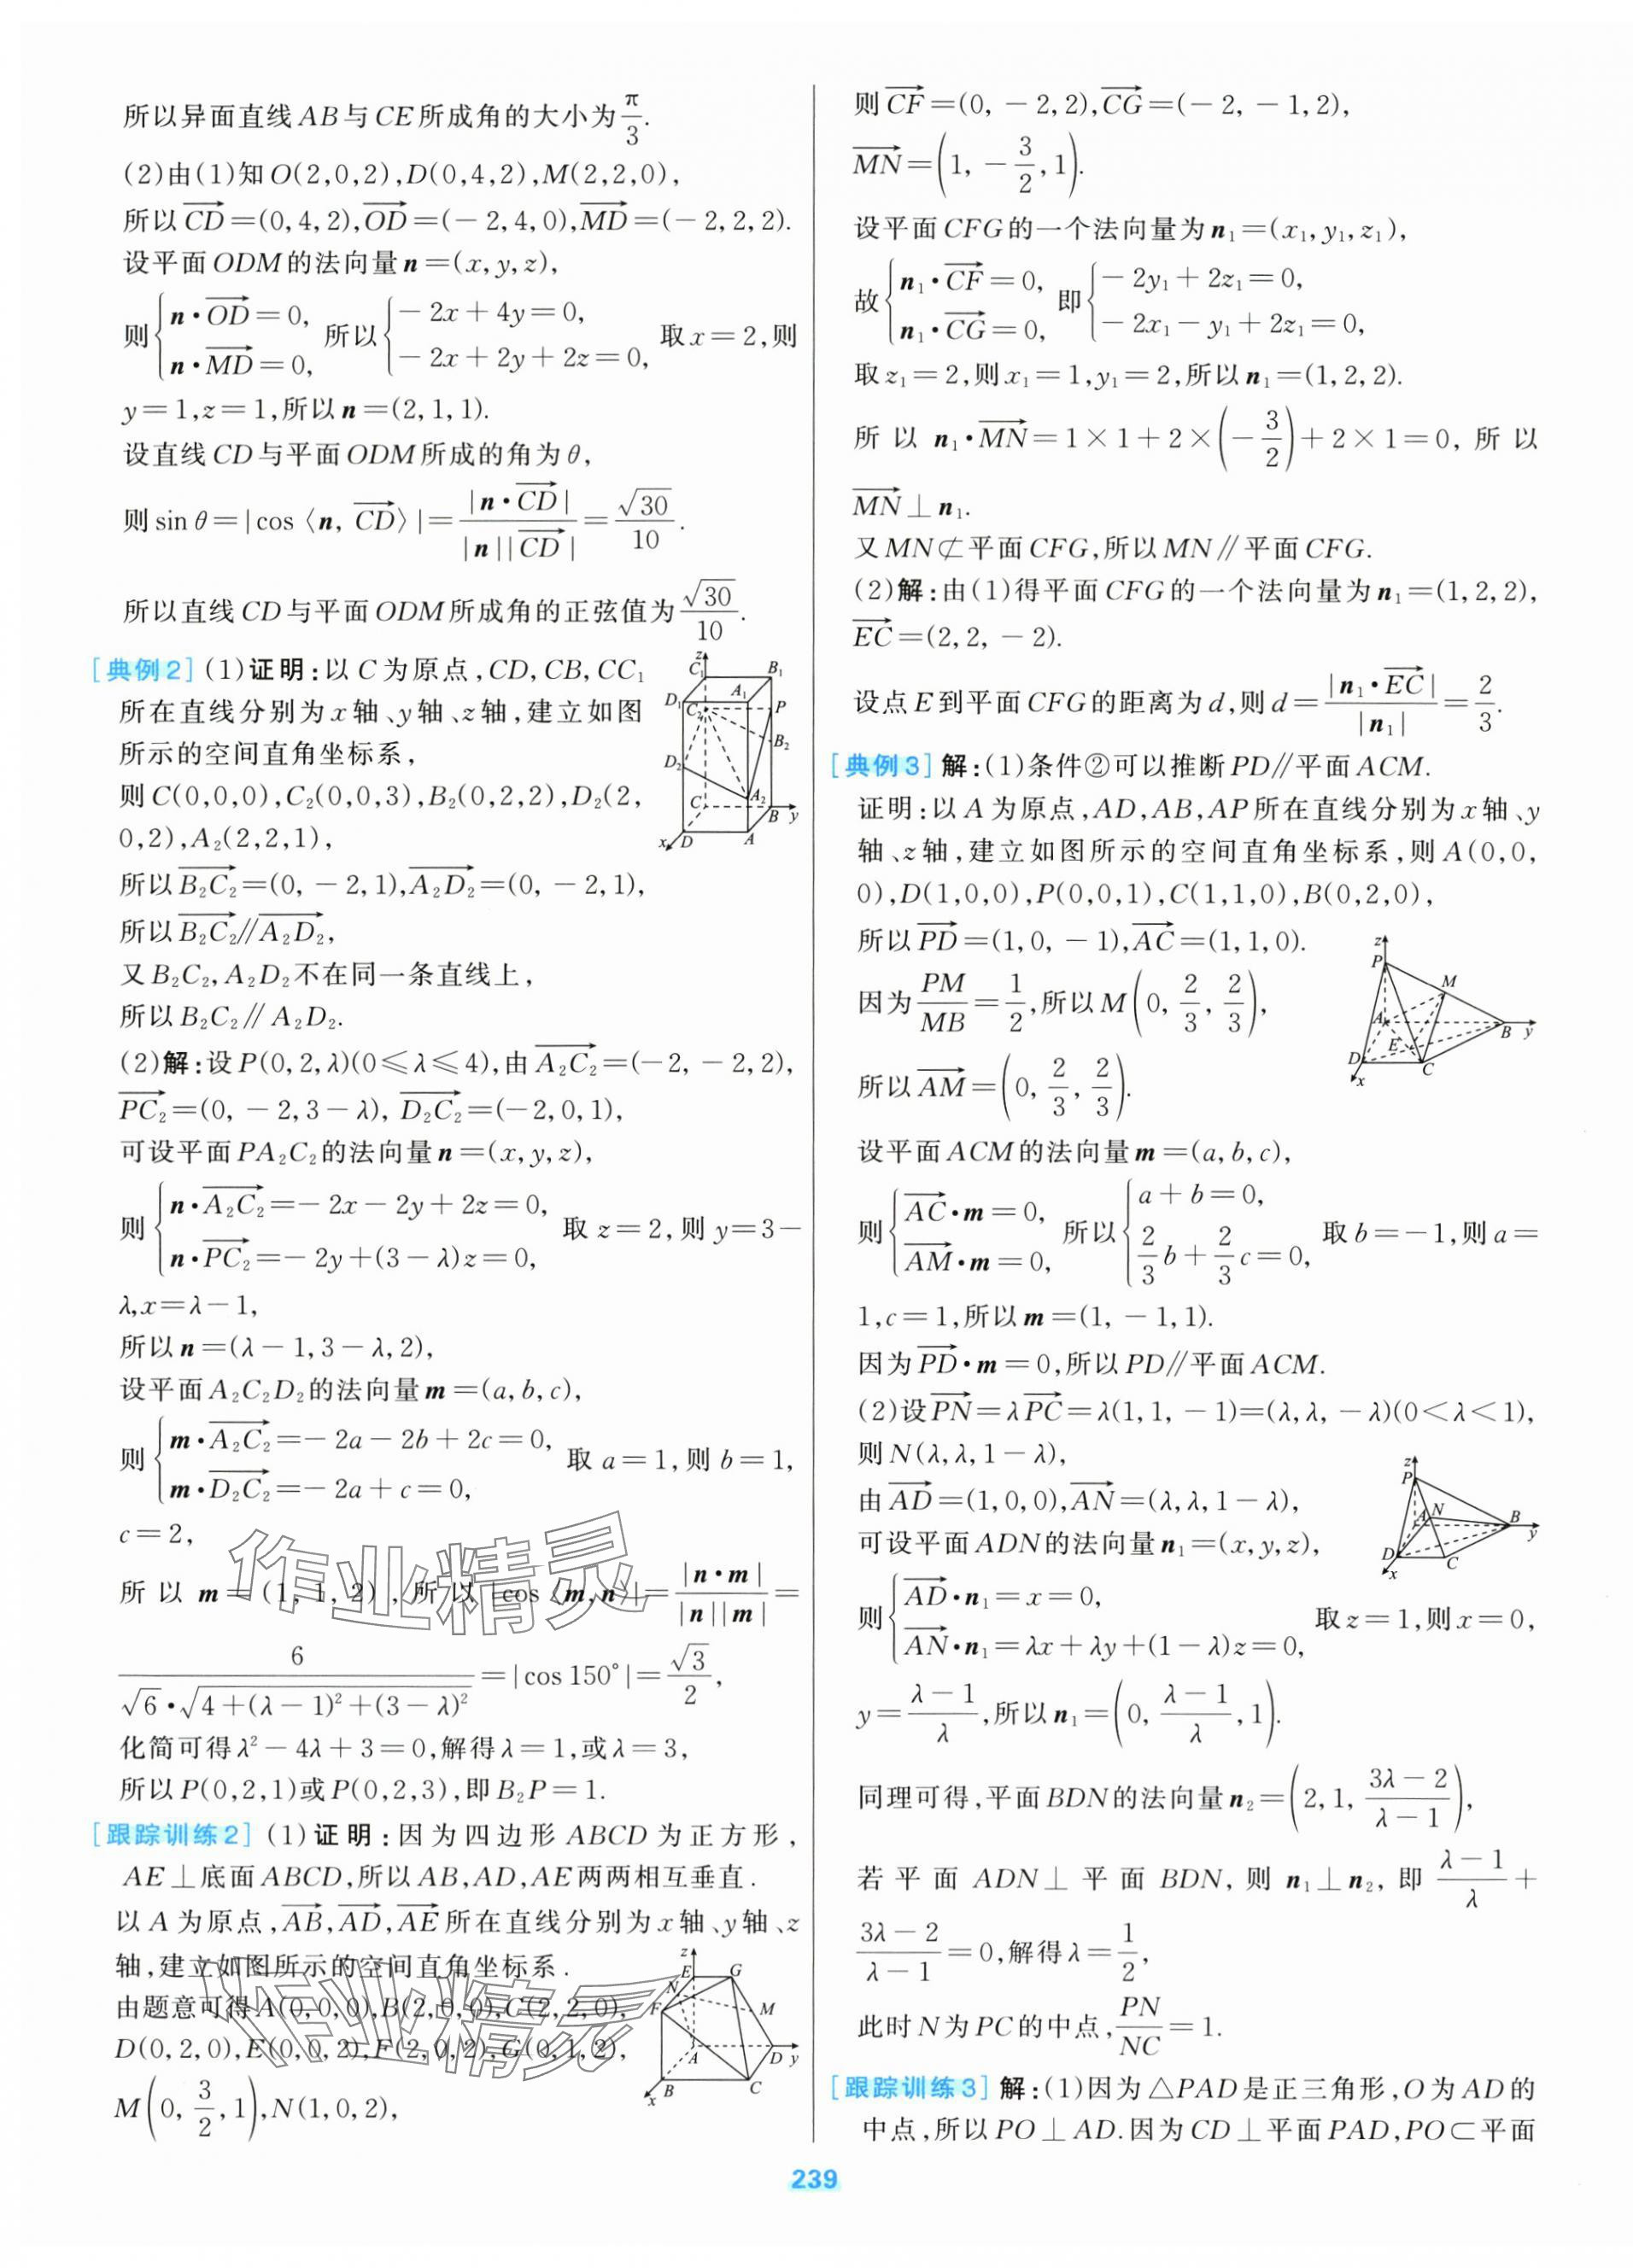 所以异面直线AB与CE所成角的大小为π/3.
(2)由(1)知O(2,0,2),D(0,4,2),M(2,2,0),
所以→CD=(0,4,2),→OD=(-2,4,0),→MD=(-2,2,2).
设平面ODM的法向量n=(x,y,z),
则{n·→OD=0, n·→MD=0, 所以{-2x+4y=0, -2x+2y+2z=0, 取x=2,则
y=1,z=1,所以n=(2,1,1).
设直线CD与平面ODM所成的角为θ,
则sin θ=|cos〈n,→CD〉|=|n·→CD|/(|n||→CD|)=√30/10.
所以直线CD与平面ODM所成角的正弦值为√30/10.
[典例2](1)证明:以C为原点,CD,CB,CC₁
所在直线分别为x轴、y轴、z轴,建立如图
所示的空间直角坐标系,
则C(0,0,0),C₂(0,0,3),B₂(0,2,2),D₂(2,
0,2),A₂(2,2,1),
所以→B₂C₂=(0,-2,1),→A₂D₂=(0,-2,1),
所以→B₂C₂∥→A₂D₂,
又B₂C₂,A₂D₂不在同一条直线上,
所以B₂C₂∥A₂D₂.
z C₁ B₁ D₁ A₁ C₂ P B₂ D₂ C A₂ B y x D A
(2)解:设P(0,2,λ)(0≤λ≤4),由→A₂C₂=(-2,-2,2),
→PC₂=(0,-2,3-λ),→D₂C₂=(-2,0,1),
可设平面PA₂C₂的法向量n=(x,y,z),
则{n·→A₂C₂=-2x-2y+2z=0, n·→PC₂=-2y+(3-λ)z=0, 取z=2,则y=3-
λ,x=λ-1,
所以n=(λ-1,3-λ,2),
设平面A₂C₂D₂的法向量m=(a,b,c),
则{m·→A₂C₂=-2a-2b+2c=0, m·→D₂C₂=-2a+c=0, 取a=1,则b=1,
c=2,
所以m=(1,1,2),所以|cos〈m,n〉|=|n·m|/(|n||m|)=
6/(√6·√(4+(λ-1)²+(3-λ)²))=|cos 150°|=√3/2,
化简可得λ²-4λ+3=0,解得λ=1,或λ=3,
所以P(0,2,1)或P(0,2,3),即B₂P=1.
[跟踪训练2](1)证明:因为四边形ABCD为正方形,
AE⊥底面ABCD,所以AB,AD,AE两两相互垂直.
以A为原点,→AB,→AD,→AE所在直线分别为x轴、y轴、z
轴,建立如图所示的空间直角坐标系.
由题意可得A(0,0,0),B(2,0,0),C(2,2,0),
D(0,2,0),E(0,0,2),F(2,0,2),G(0,1,2),
M(0,3/2,1),N(1,0,2),
z E G N F M A D y B C x
作业精灵
作业精灵
则→CF=(0,-2,2),→CG=(-2,-1,2),
→MN=(1,-3/2,1).
设平面CFG的一个法向量为n₁=(x₁,y₁,z₁),
故{n₁·→CF=0, n₁·→CG=0, 即{-2y₁+2z₁=0, -2x₁-y₁+2z₁=0,
取z₁=2,则x₁=1,y₁=2,所以n₁=(1,2,2).
所以n₁·→MN=1×1+2×(-3/2)+2×1=0,所以
→MN⊥n₁.
又MN⊄平面CFG,所以MN∥平面CFG.
(2)解:由(1)得平面CFG的一个法向量为n₁=(1,2,2),
→EC=(2,2,-2).
设点E到平面CFG的距离为d,则d=|n₁·→EC|/|n₁|=2/3.
[典例3]解:(1)条件②可以推断PD∥平面ACM.
证明:以A为原点,AD,AB,AP所在直线分别为x轴、y
轴、z轴,建立如图所示的空间直角坐标系,则A(0,0,
0),D(1,0,0),P(0,0,1),C(1,1,0),B(0,2,0),
所以→PD=(1,0,-1),→AC=(1,1,0).
因为PM/MB=1/2,所以M(0,2/3,2/3),
所以→AM=(0,2/3,2/3).
z P M A E B y D C x
设平面ACM的法向量m=(a,b,c),
则{→AC·m=0, →AM·m=0, 所以{a+b=0, 2/3b+2/3c=0, 取b=-1,则a=
1,c=1,所以m=(1,-1,1).
因为→PD·m=0,所以PD∥平面ACM.
(2)设→PN=λ→PC=λ(1,1,-1)=(λ,λ,-λ)(0<λ<1),
则N(λ,λ,1-λ),
由→AD=(1,0,0),→AN=(λ,λ,1-λ),
可设平面ADN的法向量n₁=(x,y,z),
z P A N B y D C x
则{→AD·n₁=x=0, →AN·n₁=λx+λy+(1-λ)z=0, 取z=1,则x=0,
y=(λ-1)/λ,所以n₁=(0,(λ-1)/λ,1).
同理可得,平面BDN的法向量n₂=(2,1,(3λ-2)/(λ-1)),
若平面ADN⊥平面BDN,则n₁⊥n₂,即(λ-1)/λ+
(3λ-2)/(λ-1)=0,解得λ=1/2,
此时N为PC的中点,PN/NC=1.
[跟踪训练3]解:(1)因为△PAD是正三角形,O为AD的
中点,所以PO⊥AD.因为CD⊥平面PAD,PO⊂平面
239